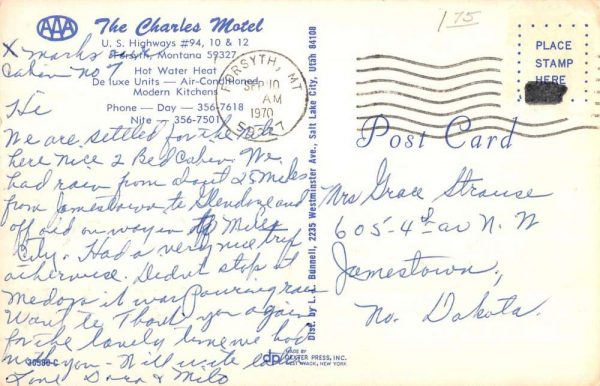 AAA
The Charles Motel
U. S. Highways #94, 10 & 12
Forsyth, Montana 59327
X marks
Cabin No 7
Hot Water Heat
De luxe Units — Air-Conditioned
Modern Kitchens
Phone — Day — 356-7618
Nite — 356-7501
Hi
We are settled for the
here nice 2 Bed Cabin. We
had rain from about 25 miles
from Jamestown to Glendive and
off and on way in to Miles
City. Had a very nice trip
otherwise. Didnt stop at
Medora it was Pouring rain
Want to Thank you again
for the lovely time we had
with you - Will write later
Love Dora & Milo
30580-C
FORSYTH, MT
SEP 10
AM
1970
59327
Dist. by L. L. Bunnell, 2235 Westminster Ave., Salt Lake City, Utah 84108
175
PLACE
STAMP
HERE
Post Card
Mrs Grace Strause
605-4th av N. W
Jamestown,
No. Dakota.
dp
MADE BY
DEXTER PRESS, INC.
WEST NYACK, NEW YORK